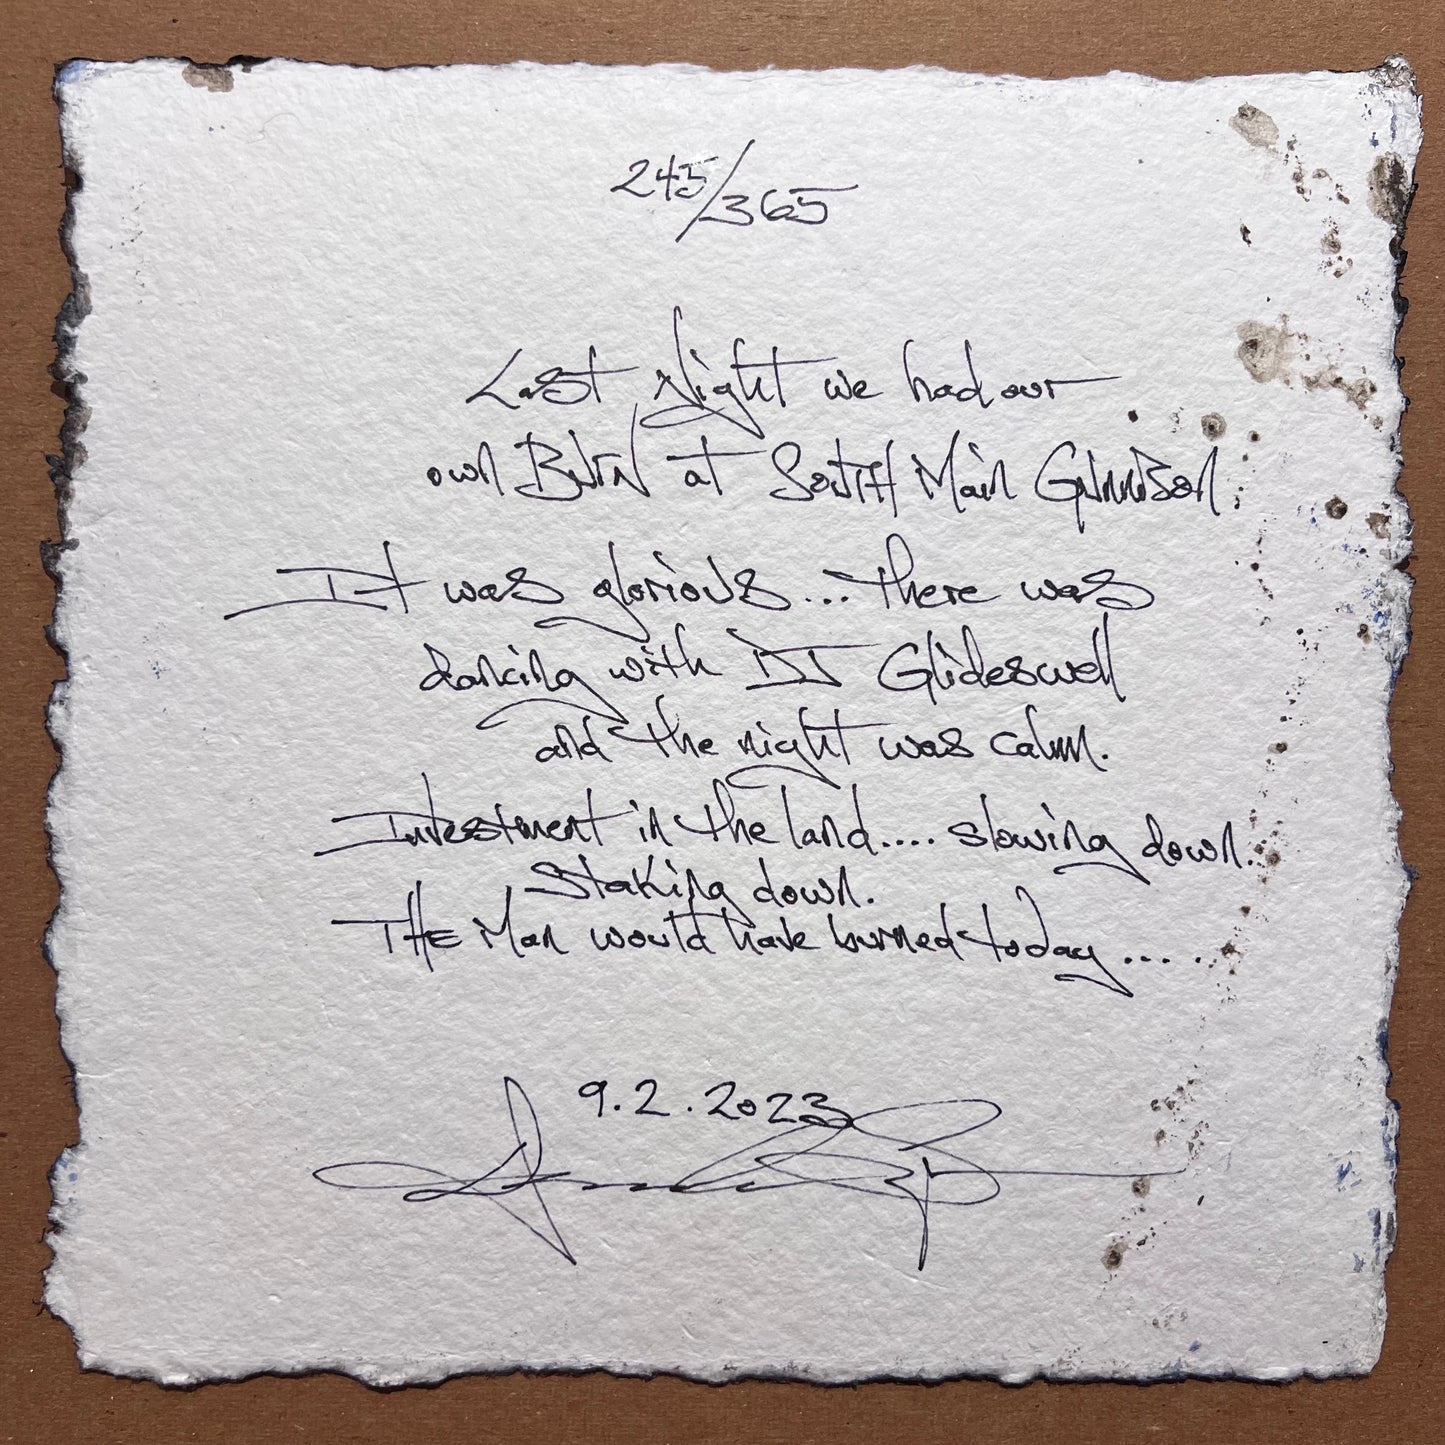 245/365
Last Night we had our
own Burn at South Main Gunnison.
It was glorious... there was
dancing with DJ Glideswell
and the night was calm.
Investment in the land.... slowing down.
Staking down.
THE Man would have burned today....
9.2.2023